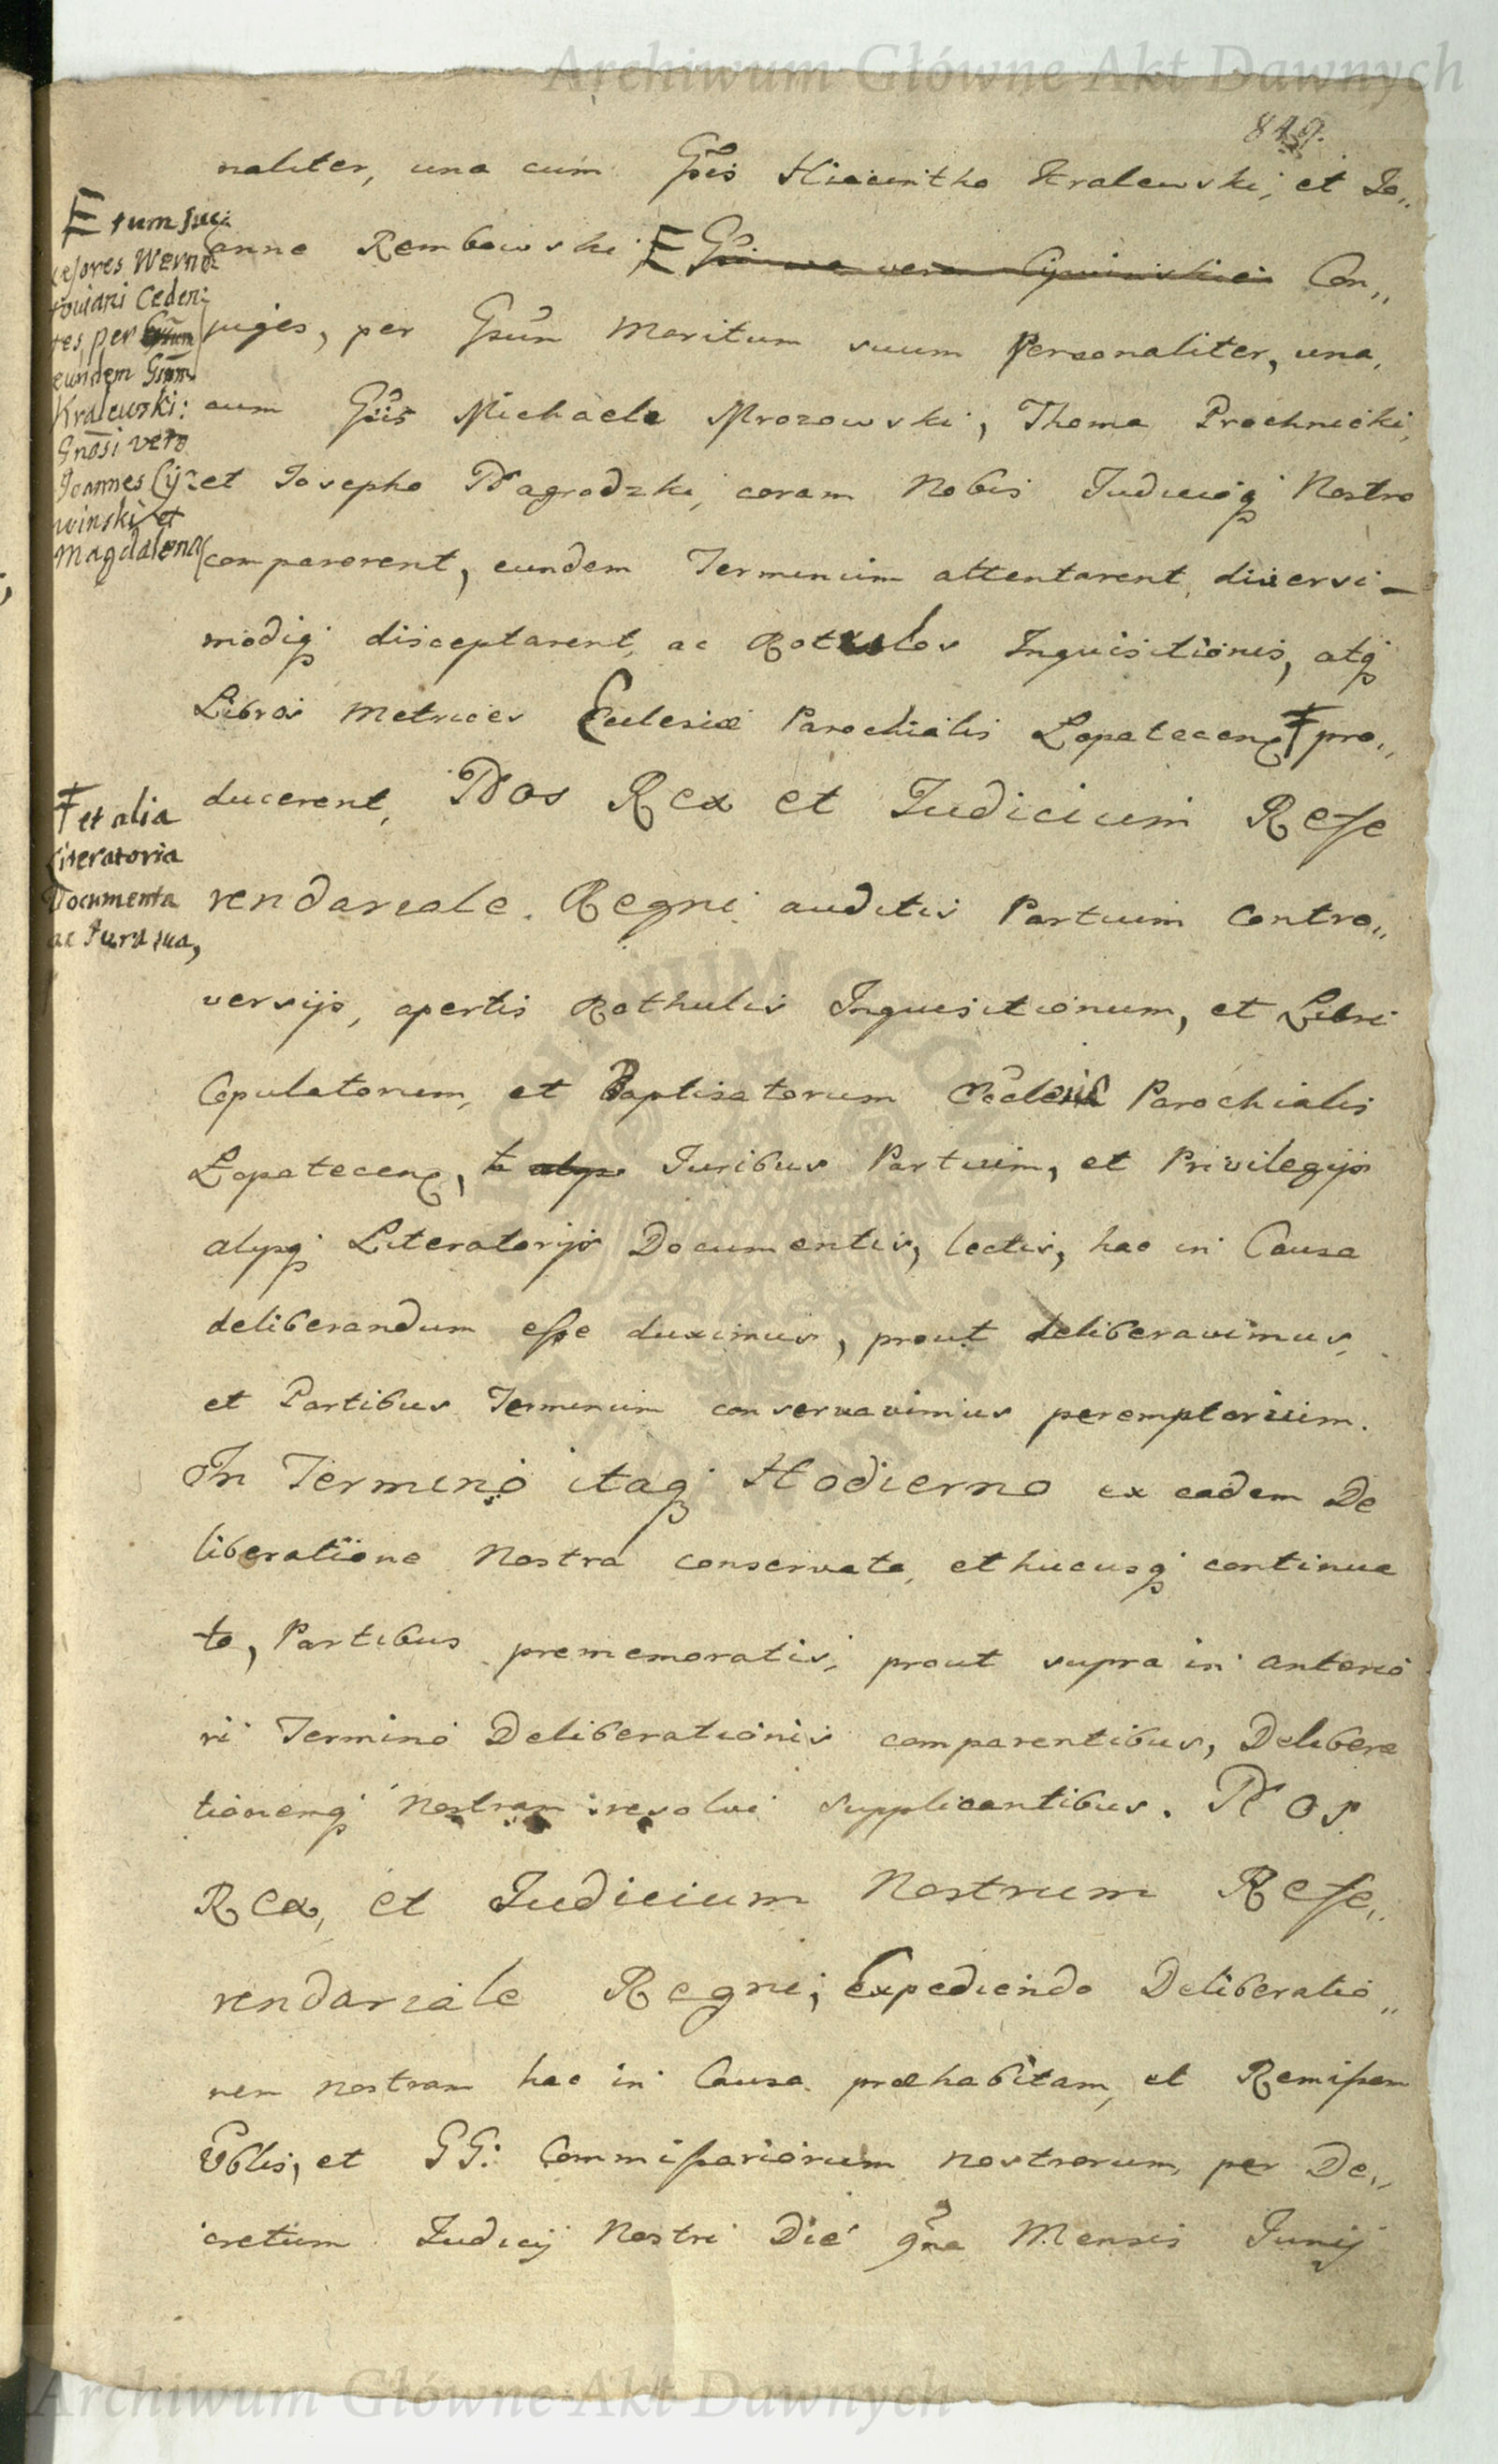 Archiwum Główne Akt Dawnych
849.
naliter, una cum Gsis Hiacintho Kralewski, et Jo„
anne Rembowski E Con„
juges, per Gsum Maritum suum Personaliter, una,
cum Gsis Michaele Mrozowski, Thoma Prochnicki,
et Josepho Nagrodzki, coram Nobis Judicioq Nostro
comparerent, eundem Terminum attentarent, diversi–
modiq disceptarent, ac Rotulos Inquisitionis, atq
Libros Metrices Ecclesiæ Parochialis Lopatecen Ŧ pro„
ducerent, Nos Rex et Judicium Refe
rendariale Regni auditis Partium Contro„
versijs, apertis Rothulis Inquisitionum, et Libri
Copulatorum, et Baptisatorum Parochialis
Lopatecen, Juribus Partium, et Privilegijs
alijsq Literatorijs Documentis, lectis, hac in Causa
deliberandum esse duximus, prout deliberavimus,
et Partibus Terminum conservavimus peremptorium.
In Termino itaq Hodierno ex eadem De
liberatione Nostra conservato, et hucusq continua
to, Partibus prememoratis, prout supra in anterio
ri Termino Deliberationis comparentibus, Delibera
tionemq Nostram resolvi supplicantibus. Nos
Rex, et Judicium Nostrum Refe„
rendariale Regni, Expediendo Deliberatio„
nem nostram hac in Causa præhabitam, et Remissam
Gblis, et GG: Commissariorum nostrorum, per De„
cretum Judicij Nostri Die 9na Mensis Junij
E tum suc:
cessores Werno
towiani Ceden:
tes, per
eundem Gnum
Kralewski:
Gnosi vero
Joannes Cy:
winski et
Magdalena
Ŧ et alia
Literatoria
Documenta
ac Jura sua,
Archiwum Główne Akt Dawnych